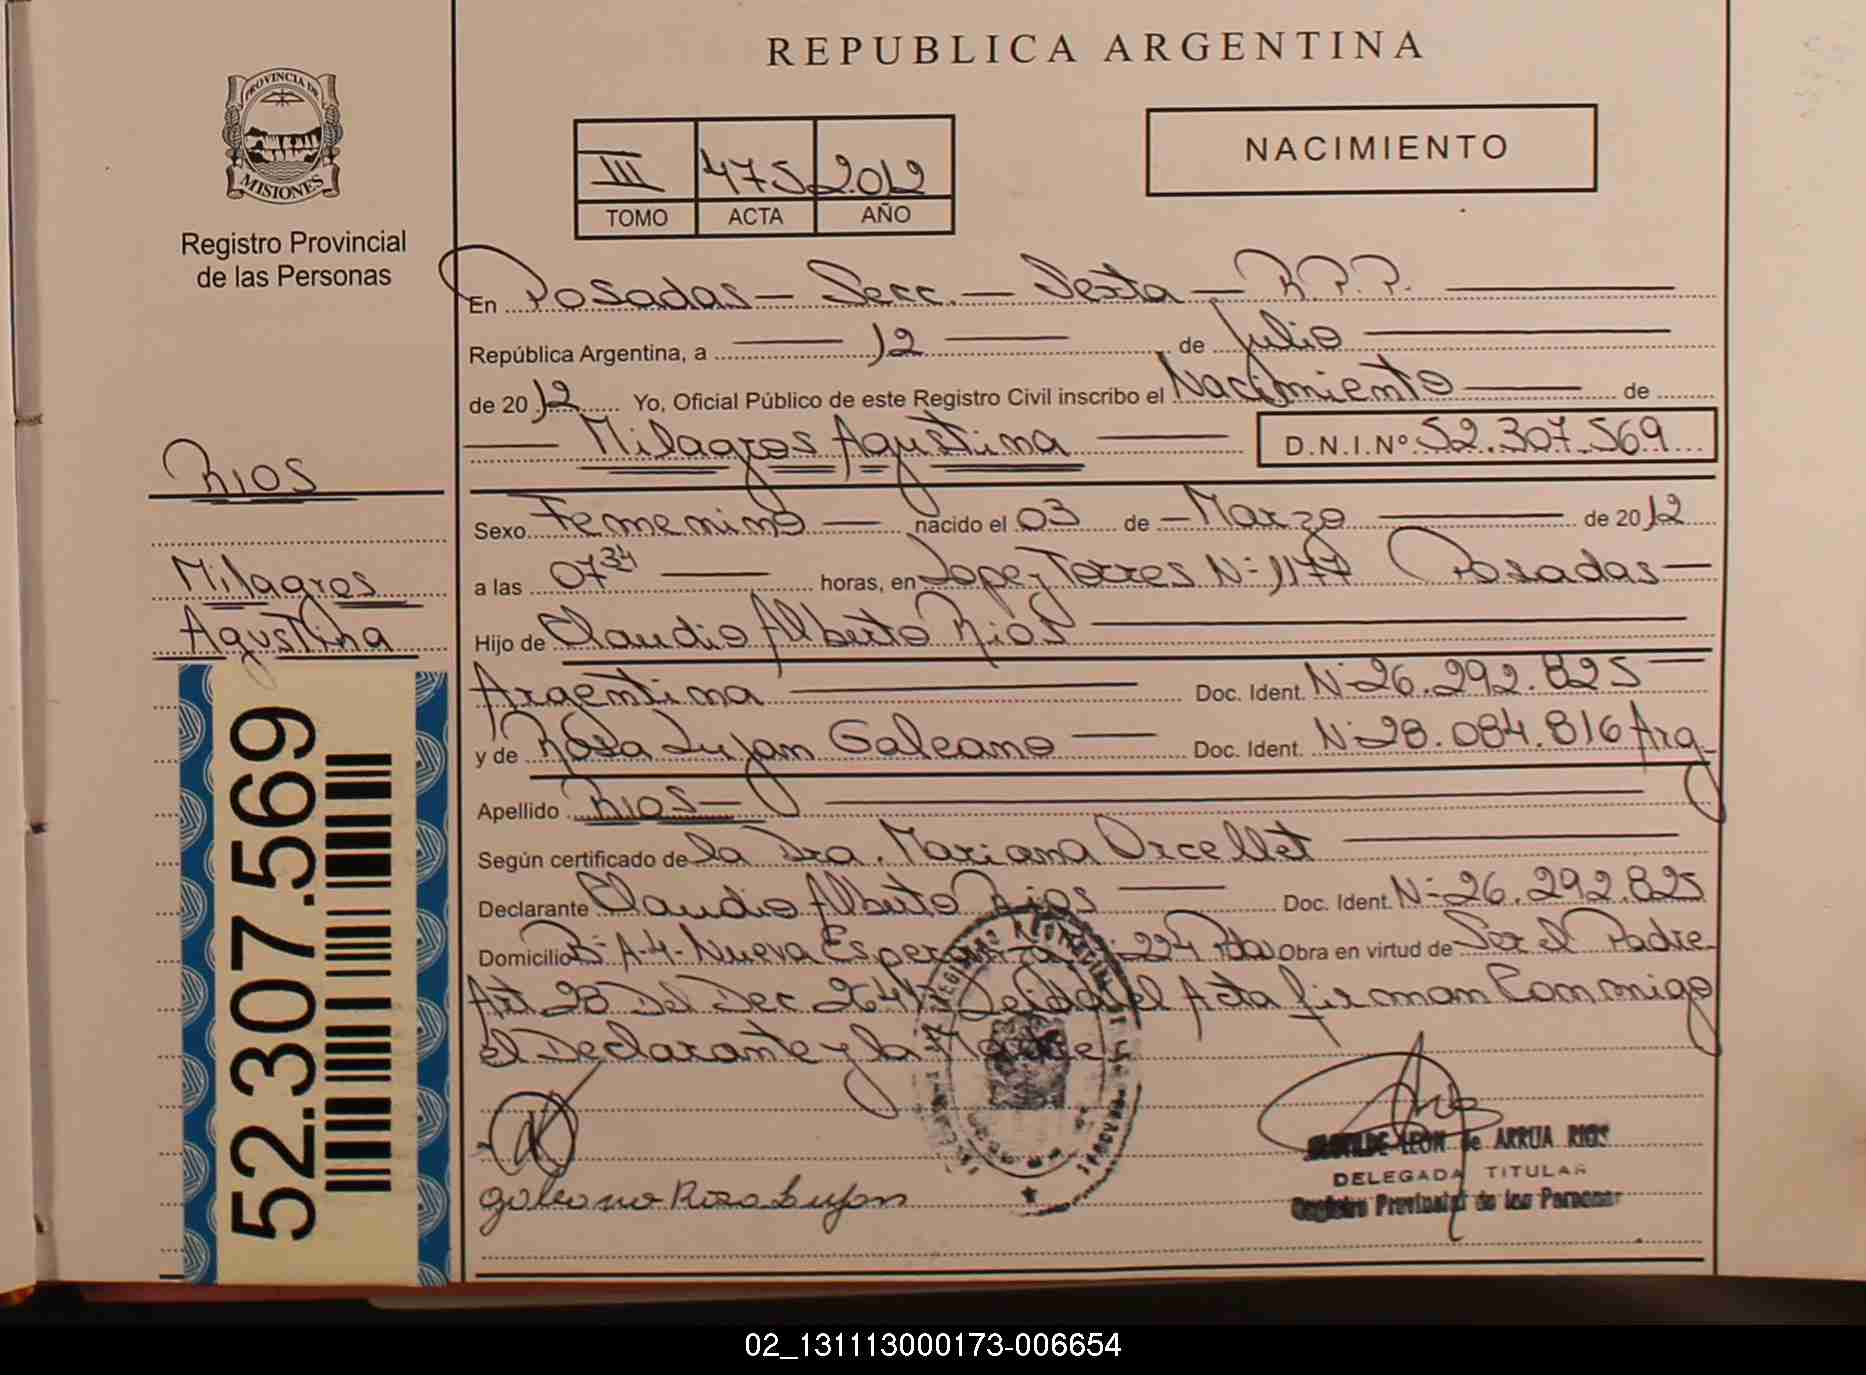 REPUBLICA ARGENTINA
PROVINCIA DE MISIONES
Registro Provincial
de las Personas
III 475 2012
TOMO ACTA AÑO
NACIMIENTO
En Posadas - Secc. - Sexta - R.P.P.
República Argentina, a 12 de Julio
de 2012 Yo, Oficial Público de este Registro Civil inscribo el Nacimiento de
Milagros Agustina D.N.I.Nº 52.307.569
RIOS
Milagros
Agustina
52.307.569
Sexo Femenino nacido el 03 de Marzo de 2012
a las 07 34 horas, en Lopez Torres Nº 1177 Posadas
Hijo de Claudio Alberto Rios
Argentina Doc. Ident. Nº 26.292.825
y de Rosa Lujan Galeano Doc. Ident. Nº 28.084.816 Arg
Apellido RIOS
Según certificado de la Dra. Mariana Orcellet
Declarante Claudio Alberto Rios Doc. Ident. Nº 26.292.825
Domicilio Bº A-4- Nueva Esperanza 224 Pdas Obra en virtud de Ser el Padre
Art 28 Del Dec 264 Leida el Acta firman Conmigo
el Declarante y la Madre
Galeano Rosa Lujan
LEON de ARRUA RIOS
DELEGADA TITULAR
Registro Provincial de las Personas
02_131113000173-006654